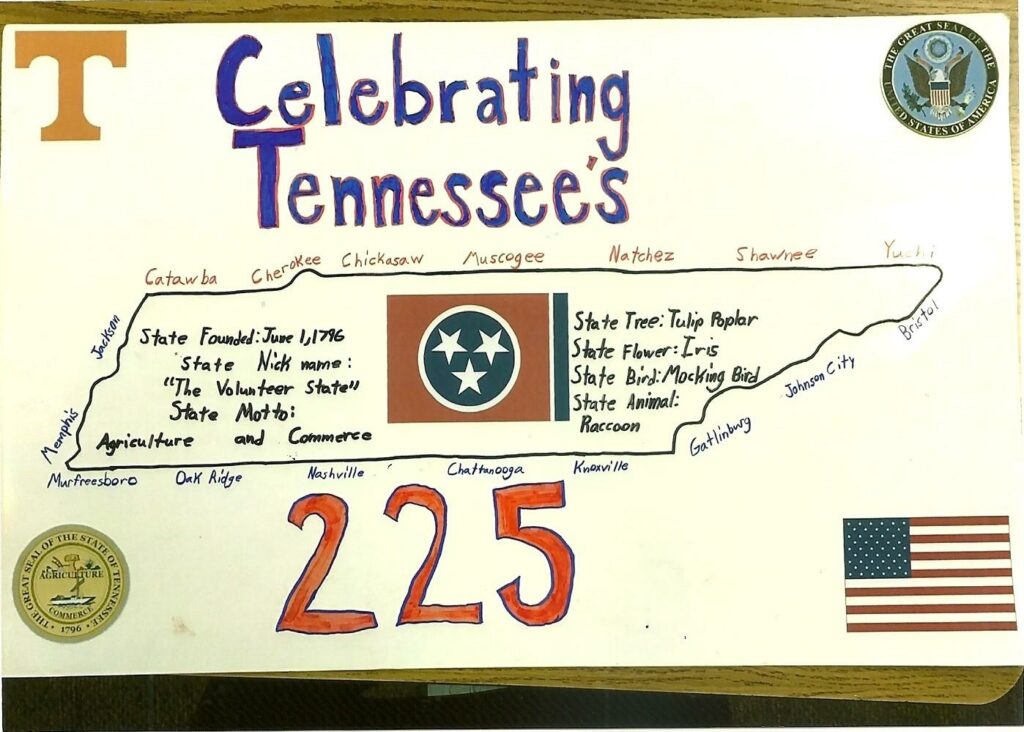 T
Celebrating
Tennessee's
THE GREAT SEAL OF THE UNITED STATES OF AMERICA
Catawba Cherokee Chickasaw Muscogee Natchez Shawnee Yuchi
Jackson
Memphis
State Founded: June 1, 1796
State Nick name:
"The Volunteer State"
State Motto:
Agriculture and Commerce
State Tree: Tulip Poplar
State Flower: Iris
State Bird: Mocking Bird
State Animal:
Raccoon
Bristol
Johnson City
Gatlinburg
Murfreesboro Oak Ridge Nashville Chattanooga Knoxville
225
THE GREAT SEAL OF THE STATE OF TENNESSEE
AGRICULTURE
COMMERCE
1796